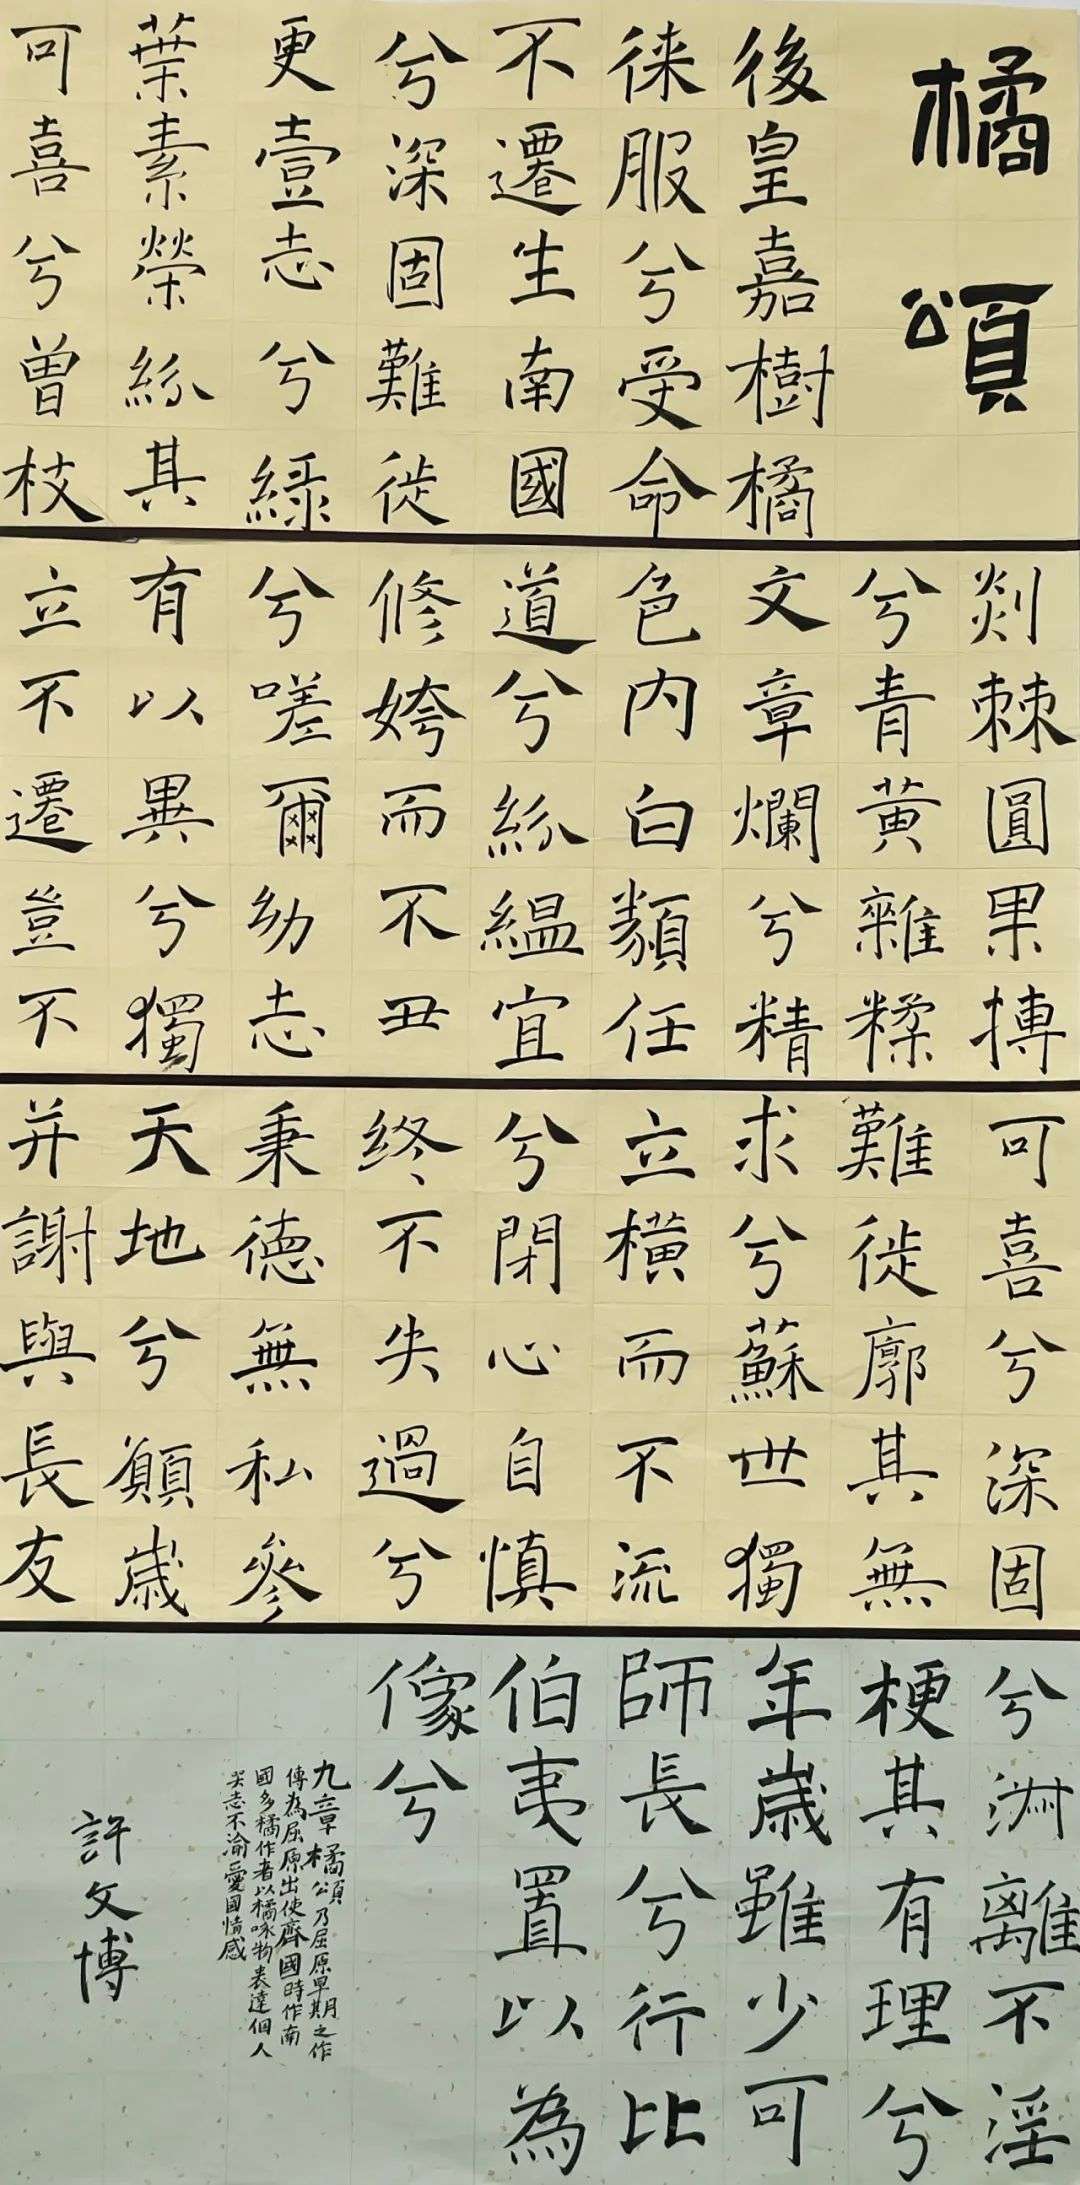 橘頌
後皇嘉樹橘
徠服兮受命
不遷生南國
兮深固難徙
更壹志兮綠
葉素榮紛其
可喜兮曾枝
剡棘圓果摶
兮青黃雜糅
文章爛兮精
色内白類任
道兮紛緼宜
修姱而不丑
兮嗟爾幼志
有以異兮獨
立不遷豈不
可喜兮深固
難徙廓其無
求兮蘇世獨
立橫而不流
兮閉心自慎
終不失過兮
秉德無私參
天地兮願歲
并謝與長友
兮淋離不淫
梗其有理兮
年歲雖少可
師長兮行比
伯夷置以為
像兮
九章橘頌乃屈原早期之作
傳為屈原出使齊國時作南
國多橘作者以橘咏物表達個人
矢志不渝愛國情感
許文博